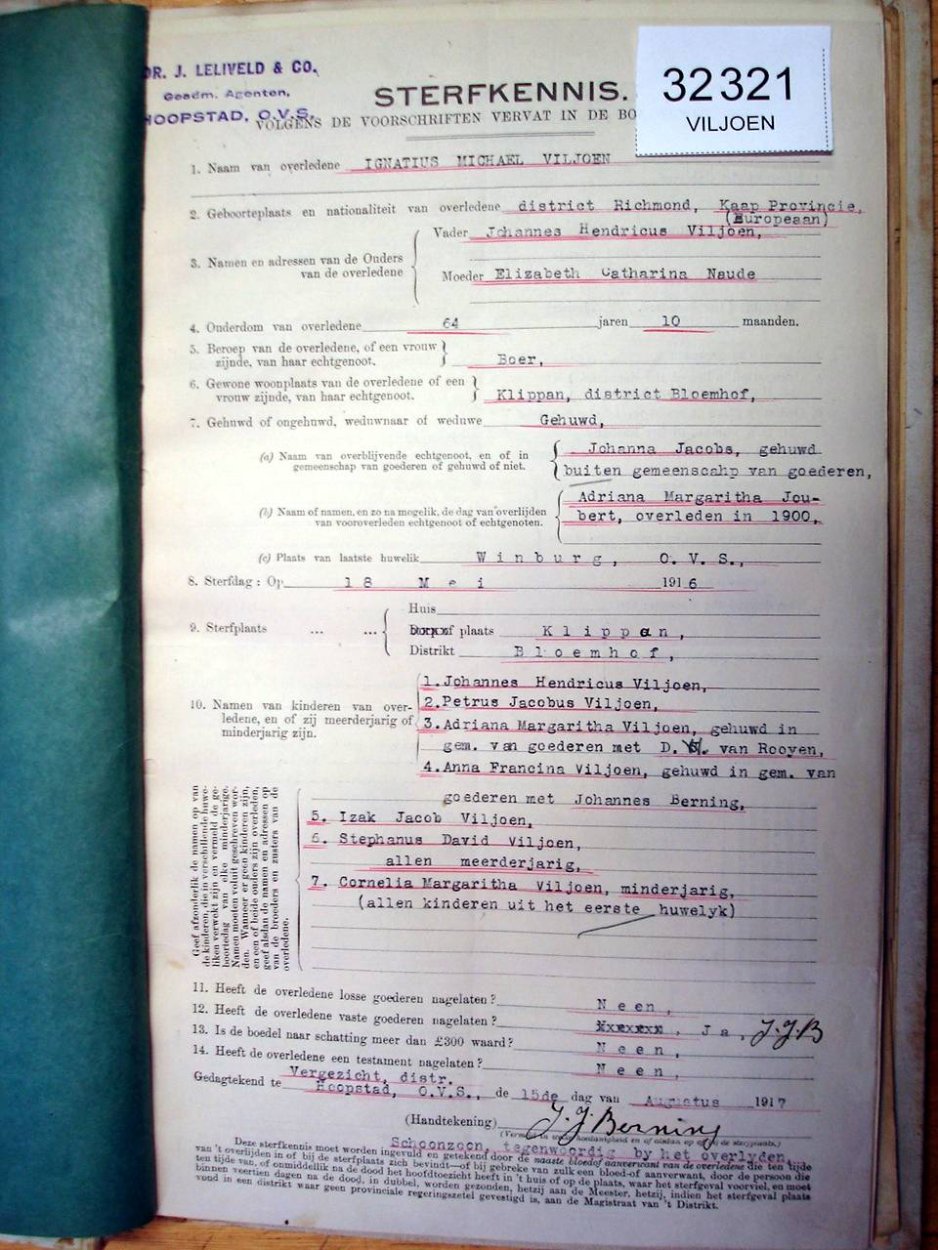 DR. J. LELIVELD & CO.,
Geadm. Agenten,
HOOPSTAD, O.V.S.
32321
VILJOEN
STERFKENNIS.
VOLGENS DE VOORSCHRIFTEN VERVAT IN DE BO
1. Naam van overledene IGNATIUS MICHAEL VILJOEN
2. Geboorteplaats en nationaliteit van overledene district Richmond, Kaap Provincie,
(Europeaan)
Vader Johannes Hendricus Viljoen,
3. Namen en adressen van de Ouders
van de overledene
Moeder Elizabeth Catharina Naude
4. Onderdom van overledene 64 jaren 10 maanden.
5. Beroep van de overledene, of een vrouw
zijnde, van haar echtgenoot. Boer,
6. Gewone woonplaats van de overledene of een
vrouw zijnde, van haar echtgenoot. Klippan, district Bloemhof,
7. Gehuwd of ongehuwd, weduwnaar of weduwe Gehuwd,
(a) Naam van overblijvende echtgenoot, en of in
gemeenschap van goederen of gehuwd of niet.
Johanna Jacobs, gehuwd
buiten gemeenscahp van goederen,
(b) Naam of namen, en zo na mogelik, de dag van overlijden
van vooroverleden echtgenoot of echtgenoten.
Adriana Margaritha Jou-
bert, overleden in 1900,
(c) Plaats van laatste huwelik Winburg, O.V.S.,
8. Sterfdag : Op 18 Mei 1916
Huis
9. Sterfplaats ... ... plaats Klippan,
Distrikt Bloemhof,
10. Namen van kinderen van over-
ledene, en of zij meerderjarig of
minderjarig zijn.
1. Johannes Hendricus Viljoen,
2. Petrus Jacobus Viljoen,
3. Adriana Margaritha Viljoen, gehuwd in
gem. van goederen met D. van Rooyen,
4. Anna Francina Viljoen, gehuwd in gem. van
goederen met Johannes Berning,
5. Izak Jacob Viljoen,
6. Stephanus David Viljoen,
allen meerderjarig,
7. Cornelia Margaritha Viljoen, minderjarig,
(allen kinderen uit het eerste huwelyk)
Geef afzonderlik de namen op van
de kinderen, die in verschillende huwe-
liken verwekt zijn en vermeld de ge-
boortedag van elke minderjarige.
Namen moeten voluit geschreven wor-
den. Wanneer er geen kinderen zijn,
en een of beide ouders zijn overleden,
geef alsdan de namen en adressen op
van de broeders en zusters van de
overledene.
11. Heeft de overledene losse goederen nagelaten? Neen,
12. Heeft de overledene vaste goederen nagelaten? xxxxxx, Ja, J.J.B
13. Is de boedel naar schatting meer dan £300 waard? Neen,
14. Heeft de overledene een testament nagelaten? Neen,
Vergezicht, distr.
Gedagtekend te Hoopstad, O.V.S., de 15de dag van Augustus 1917
(Handtekening) J. J. Berning
Schoonzoon, tegenwoordig by het overlyden,
Deze sterfkennis moet worden ingevuld en getekend door de naaste bloedof aanverwant van de overledene die ten tijde
van 't overlijden in of bij de sterfplaats zich bevindt—of bij gebreke van zulk een bloed-of aanverwant, door de persoon die
ten tijde van, of onmiddellik na de dood het hoofdtoezicht heeft in 't huis of op de plaats, waar het sterfgeval voorviel, en moet
binnen veertien dagen na de dood, in dubbel, worden gezonden, hetzij aan de Meester, hetzij, indien het sterfgeval plaats
vond in een distrikt waar geen provinciale regeringszetel gevestigd is, aan de Magistraat van 't Distrikt.